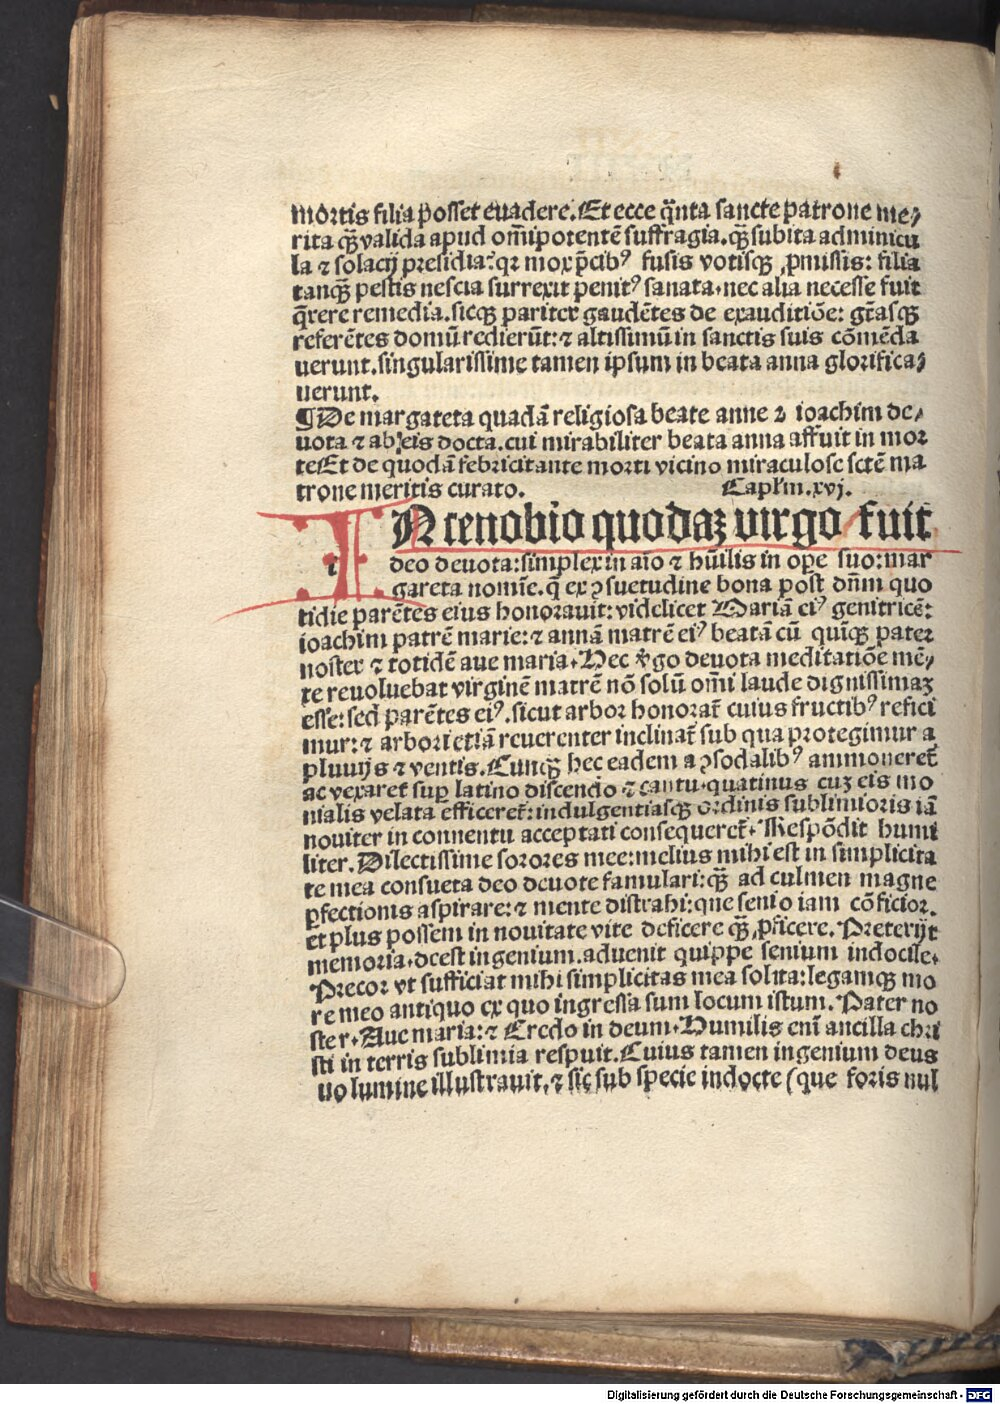 mortis filia posset euadere. Et ecce q̃nta sancte patrone me⸗
rita qꝫ̃ valida apud om̃ipotentẽ suffragia. qꝫ̃ subita adminicu
la ⁊ solacij presidia: qꝛ mox p̃cibꝰ fusis votisqꝫ ꝓmissis: filia
tanqꝫ̃ pestis nescia surrexit penitꝰ sanata. nec alia necesse fuit
q̃rere remedia. sicqꝫ pariter gaudẽtes de exauditiõe: gr̃asqꝫ
referẽtes domũ redierũt: ⁊ altissimũ in sanctis suis cõmẽda
uerunt. singularissime tamen ipsum in beata anna glorifica⸗
uerunt.
¶ De margareta quadã religiosa beate anne ⁊ ioachim de⸗
uota ⁊ ab eis docta. cui mirabiliter beata anna affuit in mor
te Et de quodã febricitante morti vicino miraculose sctẽ ma
trone meritis curato. Capłm. xvj.
IN cenobio quodaꝫ uirgo fuit
deo deuota: simplex in aĩo ⁊ hũilis in oꝑe suo: mar
gareta nomĩe. q̃ ex ꝯsuetudine bona post dñm quo
tidie parẽtes eius honorauit: videlicet Mariã eiꝰ genitricẽ:
ioachim patrẽ marie: ⁊ annã matrẽ eiꝰ beatã cũ quĩqꝫ pater
noster ⁊ totidẽ aue maria. Hec v̾go deuota meditatiõe mẽ⸗
te reuoluebat virginẽ matrẽ nõ solũ om̃i laude dignissimaꝫ
esse: sed parẽtes eiꝰ. sicut arbor honorat̃ cuius fructibꝰ refici
mur: ⁊ arbori etiã reuerenter inclinat̃ sub qua protegimur a
pluuijs ⁊ ventis. Cunqꝫ hec eadem a ꝯsodalibꝰ ammoneret̃
ac vexaret̃ suꝑ latino discendo ⁊ cantu. quatinus cuꝫ eis mo
nialis velata efficeret̃: indulgentiasqꝫ ordinis sublimioris iã
nouiter in conuentu acceptati consequeret̃. Respõdit humi
liter. Dilectissime sorores mee: melius mihi est in simplicita
te mea consueta deo deuote famulari: qꝫ̃ ad culmen magne
ꝑfectionis aspirare: ⁊ mente distrahi: que senio iam cõficior.
et plus possem in nouitate vite deficere qꝫ̃ ꝓficere. Preterijt
memoria. deest ingenium. aduenit quippe senium indocile.
Precor vt sufficiat mihi simplicitas mea solita: legamqꝫ mo
re meo antiquo ex quo ingressa sum locum istum. Pater no
ster. Aue maria: ⁊ Credo in deum. Humilis eni̅ ancilla chri
sti in terris sublimia respuit. Cuius tamen ingenium deus
uo lumine illustrauit, ⁊ sic sub specie indocte (que foris nul
Digitalisierung gefördert durch die Deutsche Forschungsgemeinschaft - DFG